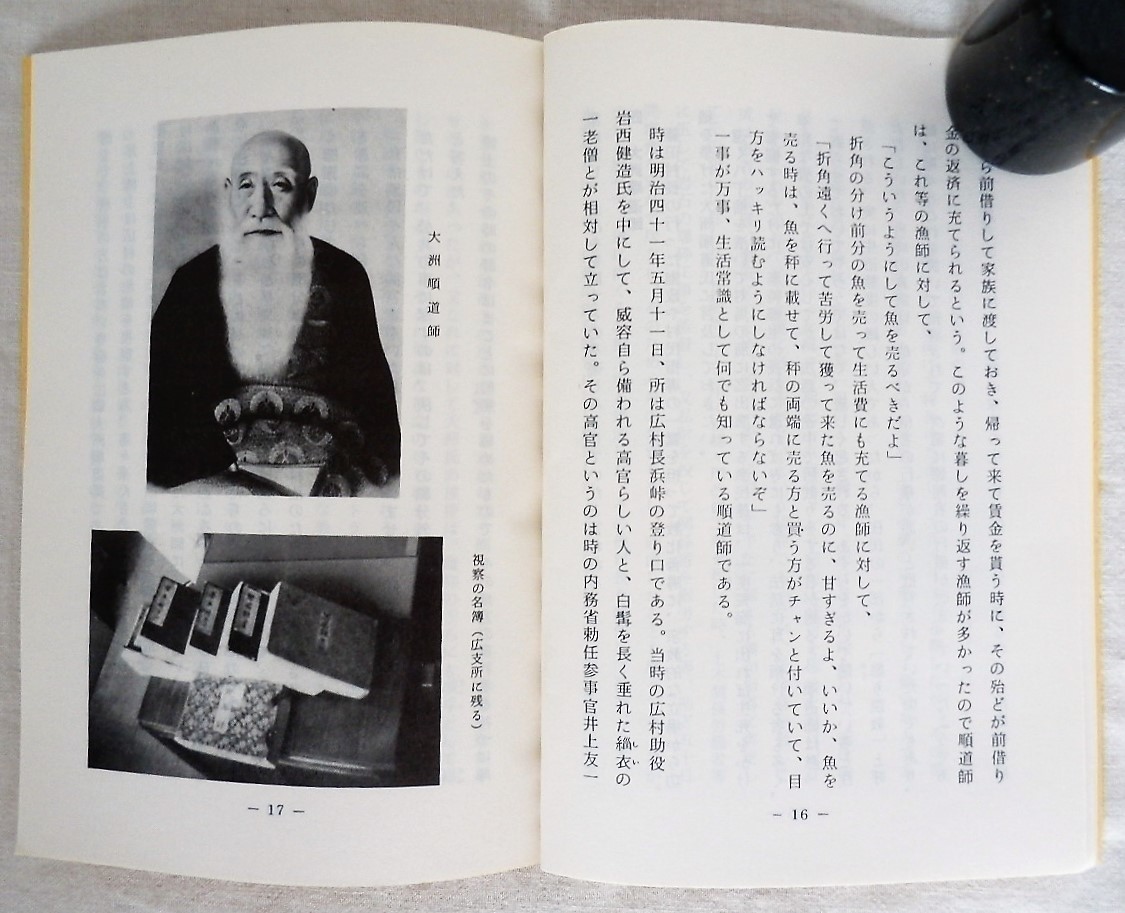 ら前借りして家族に渡しておき、帰って来て賃金を貰う時に、その殆どが前借り
金の返済に充てられるという。このような暮しを繰り返す漁師が多かったので順道師
は、これ等の漁師に対して、
「こういうようにして魚を売るべきだよ」
折角の分け前分の魚を売って生活費にも充てる漁師に対して、
「折角遠くへ行って苦労して獲って来た魚を売るのに、甘すぎるよ、いいか、魚を
売る時は、魚を秤に載せて、秤の両端に売る方と買う方がチャンと付いていて、目
方をハッキリ読むようにしなければならないぞ」
一事が万事、生活常識として何でも知っている順道師である。
時は明治四十一年五月十一日、所は広村長浜峠の登り口である。当時の広村助役
岩西健造氏を中にして、威容自ら備われる高官らしい人と、白髯を長く垂れた緇衣の
しい
一老僧とが相対して立っていた。その高官というのは時の内務省勅任参事官井上友一
― 16 ―
大洲順道師
視察の名簿（広支所に残る）
― 17 ―